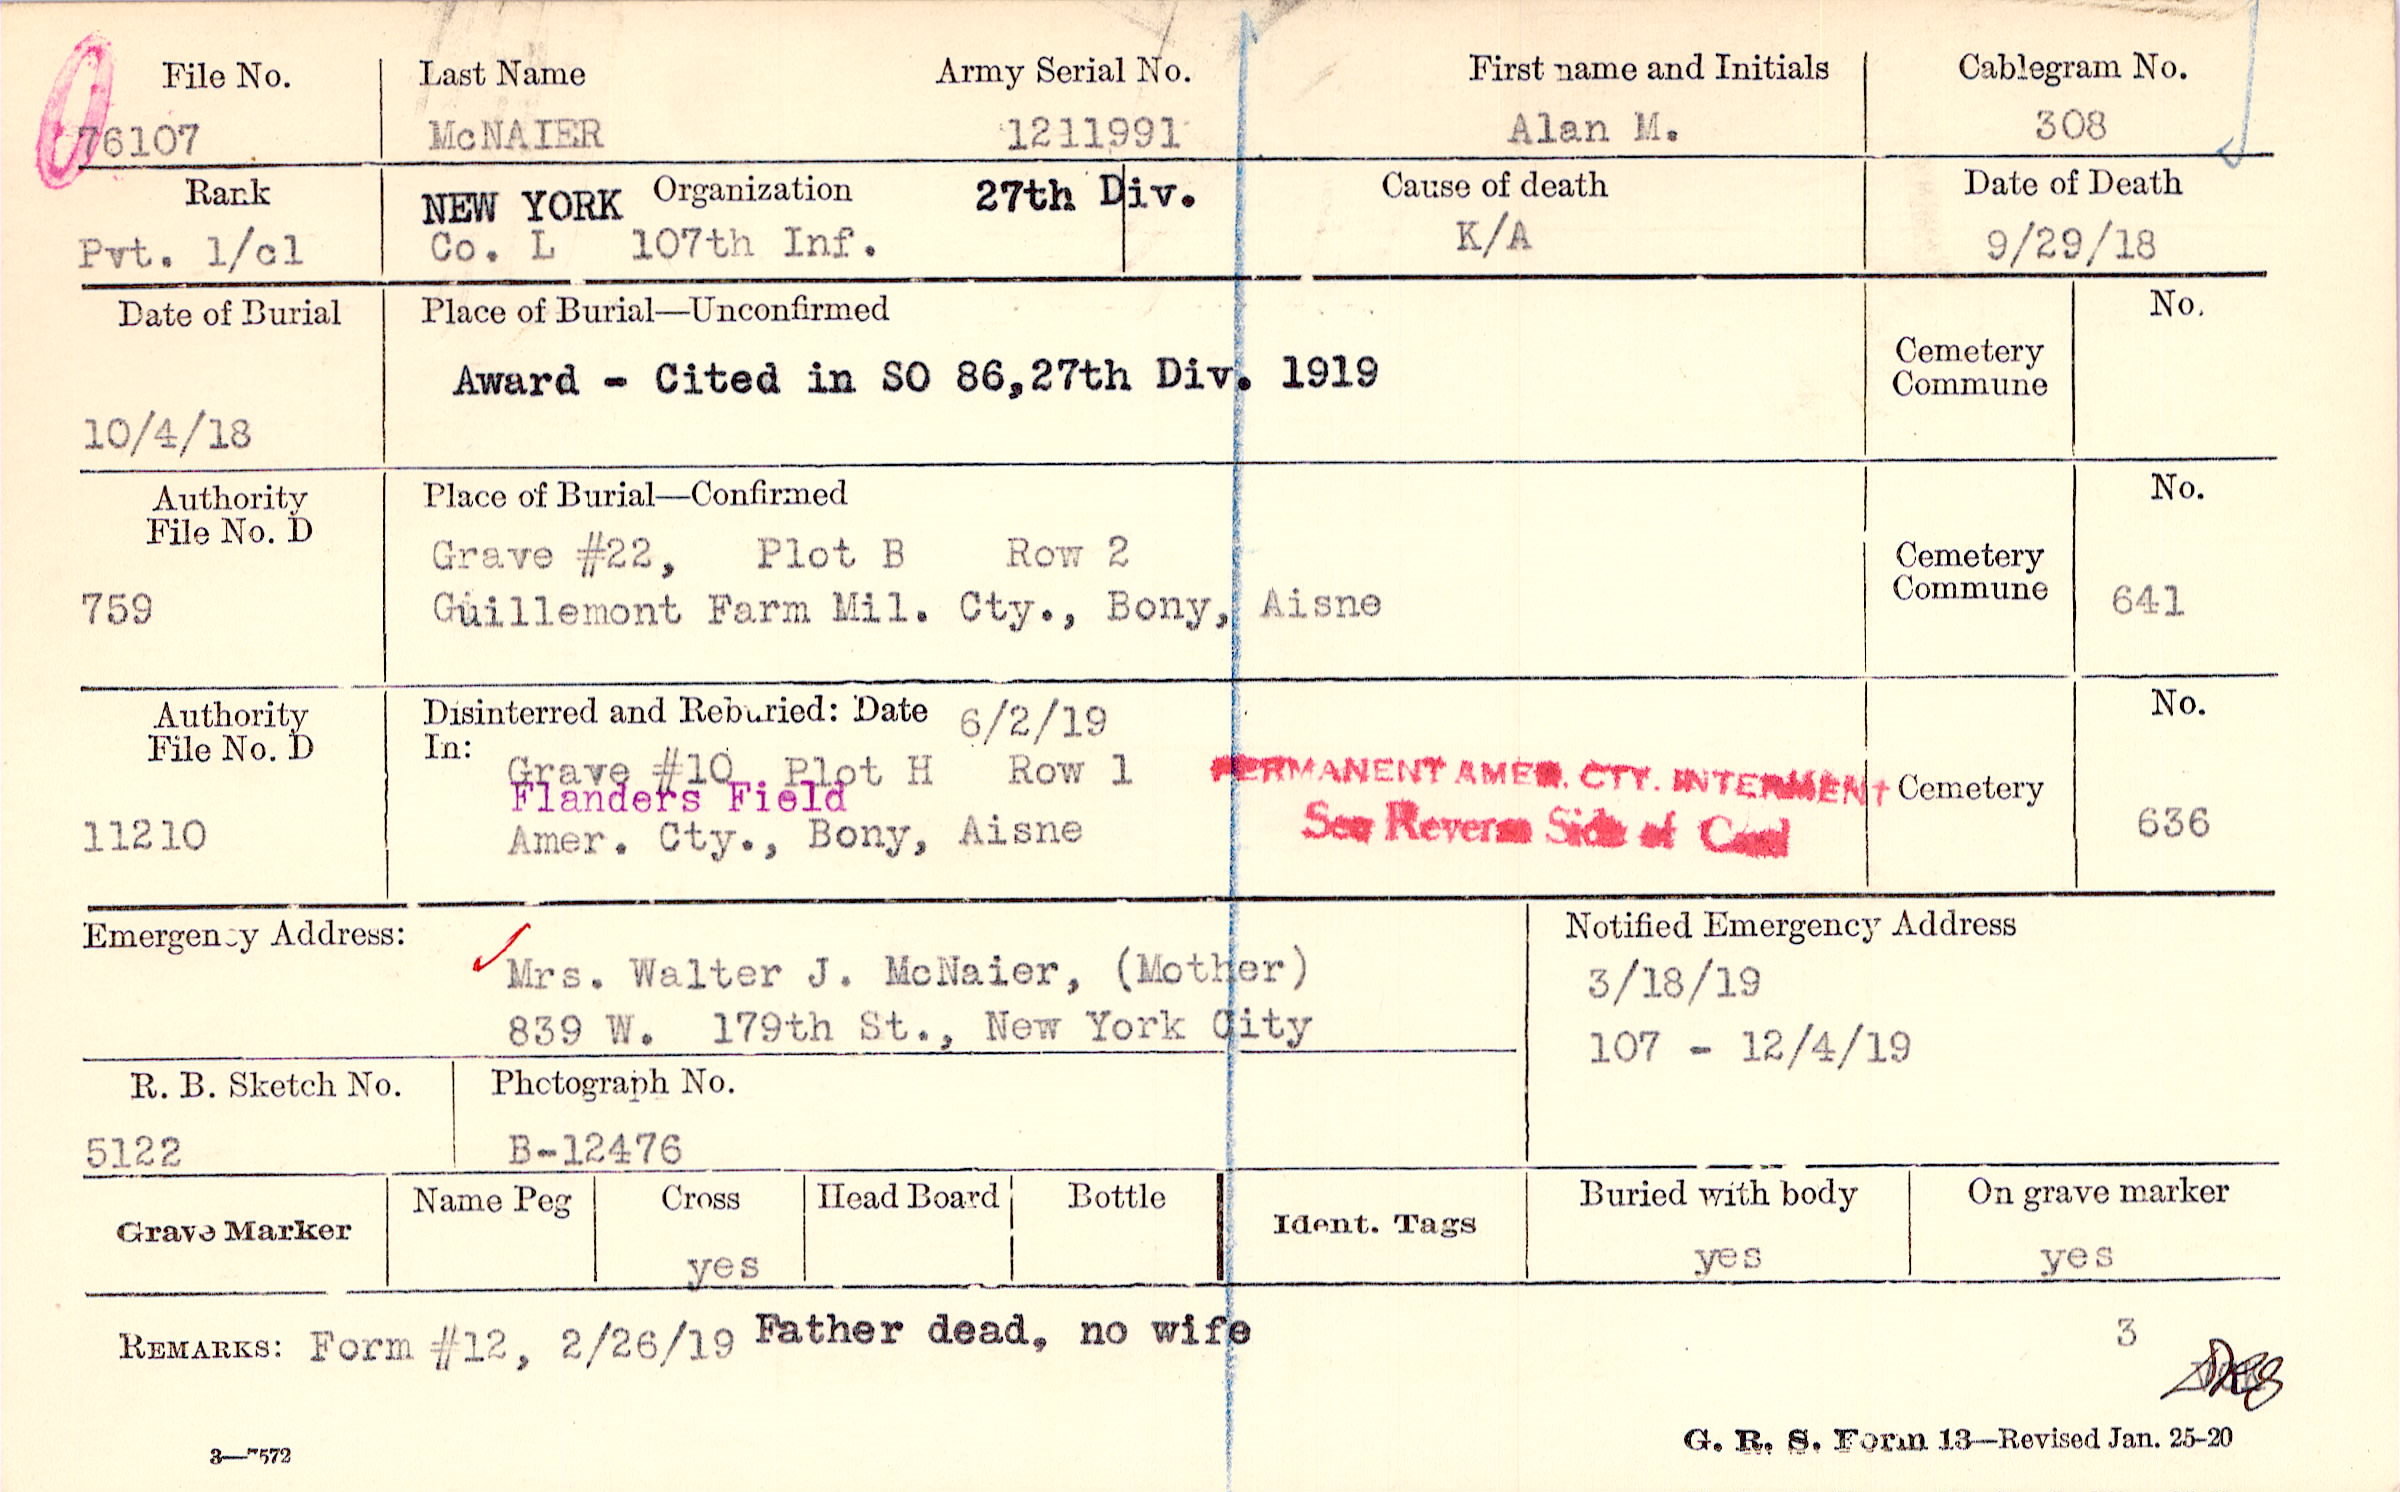 File No.
76107
Last Name
McNAIER
Army Serial No.
1211991
First name and Initials
Alan M.
Cablegram No.
308
Rank
Pvt. 1/cl
NEW YORK Organization 27th Div.
Co. L 107th Inf.
Cause of death
K/A
Date of Death
9/29/18
Date of Burial
10/4/18
Place of Burial—Unconfirmed
Award - Cited in SO 86,27th Div. 1919
Cemetery
Commune
No.
Authority
File No. D
759
Place of Burial—Confirmed
Grave #22, Plot B Row 2
Guillemont Farm Mil. Cty., Bony, Aisne
Cemetery
Commune
No.
641
Authority
File No. D
11210
Disinterred and Reburied: Date 6/2/19
In:
Grave #10 Plot H Row 1
Flanders Field
Amer. Cty., Bony, Aisne
PERMANENT AMER. CTY. INTERMENT
See Reverse Side of Card
Cemetery
No.
636
Emergency Address:
Mrs. Walter J. McNaier, (Mother)
839 W. 179th St., New York City
Notified Emergency Address
3/18/19
107 - 12/4/19
R. B. Sketch No.
5122
Photograph No.
B-12476
Grave Marker
Name Peg
Cross
yes
Head Board
Bottle
Ident. Tags
Buried with body
yes
On grave marker
yes
REMARKS: Form #12, 2/26/19 Father dead, no wife
3
3—7572
G. R. S. Form 13—Revised Jan. 25-20